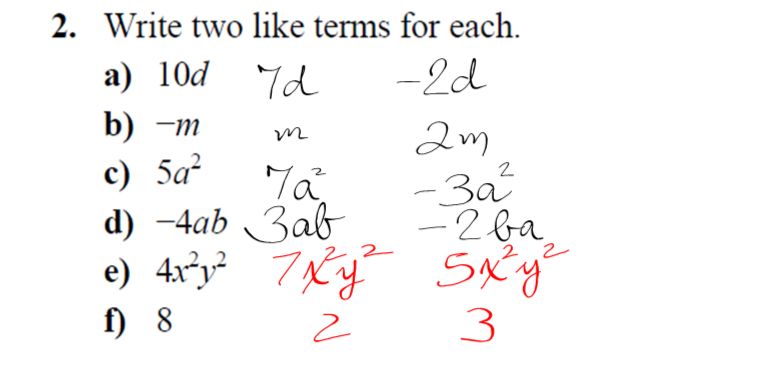 2. Write two like terms for each.
a) 10d 7d -2d
b) −m m 2m
c) 5a² 7a² -3a²
d) −4ab 3ab -2ba
e) 4x²y² 7x²y² 5x²y²
f) 8 2 3